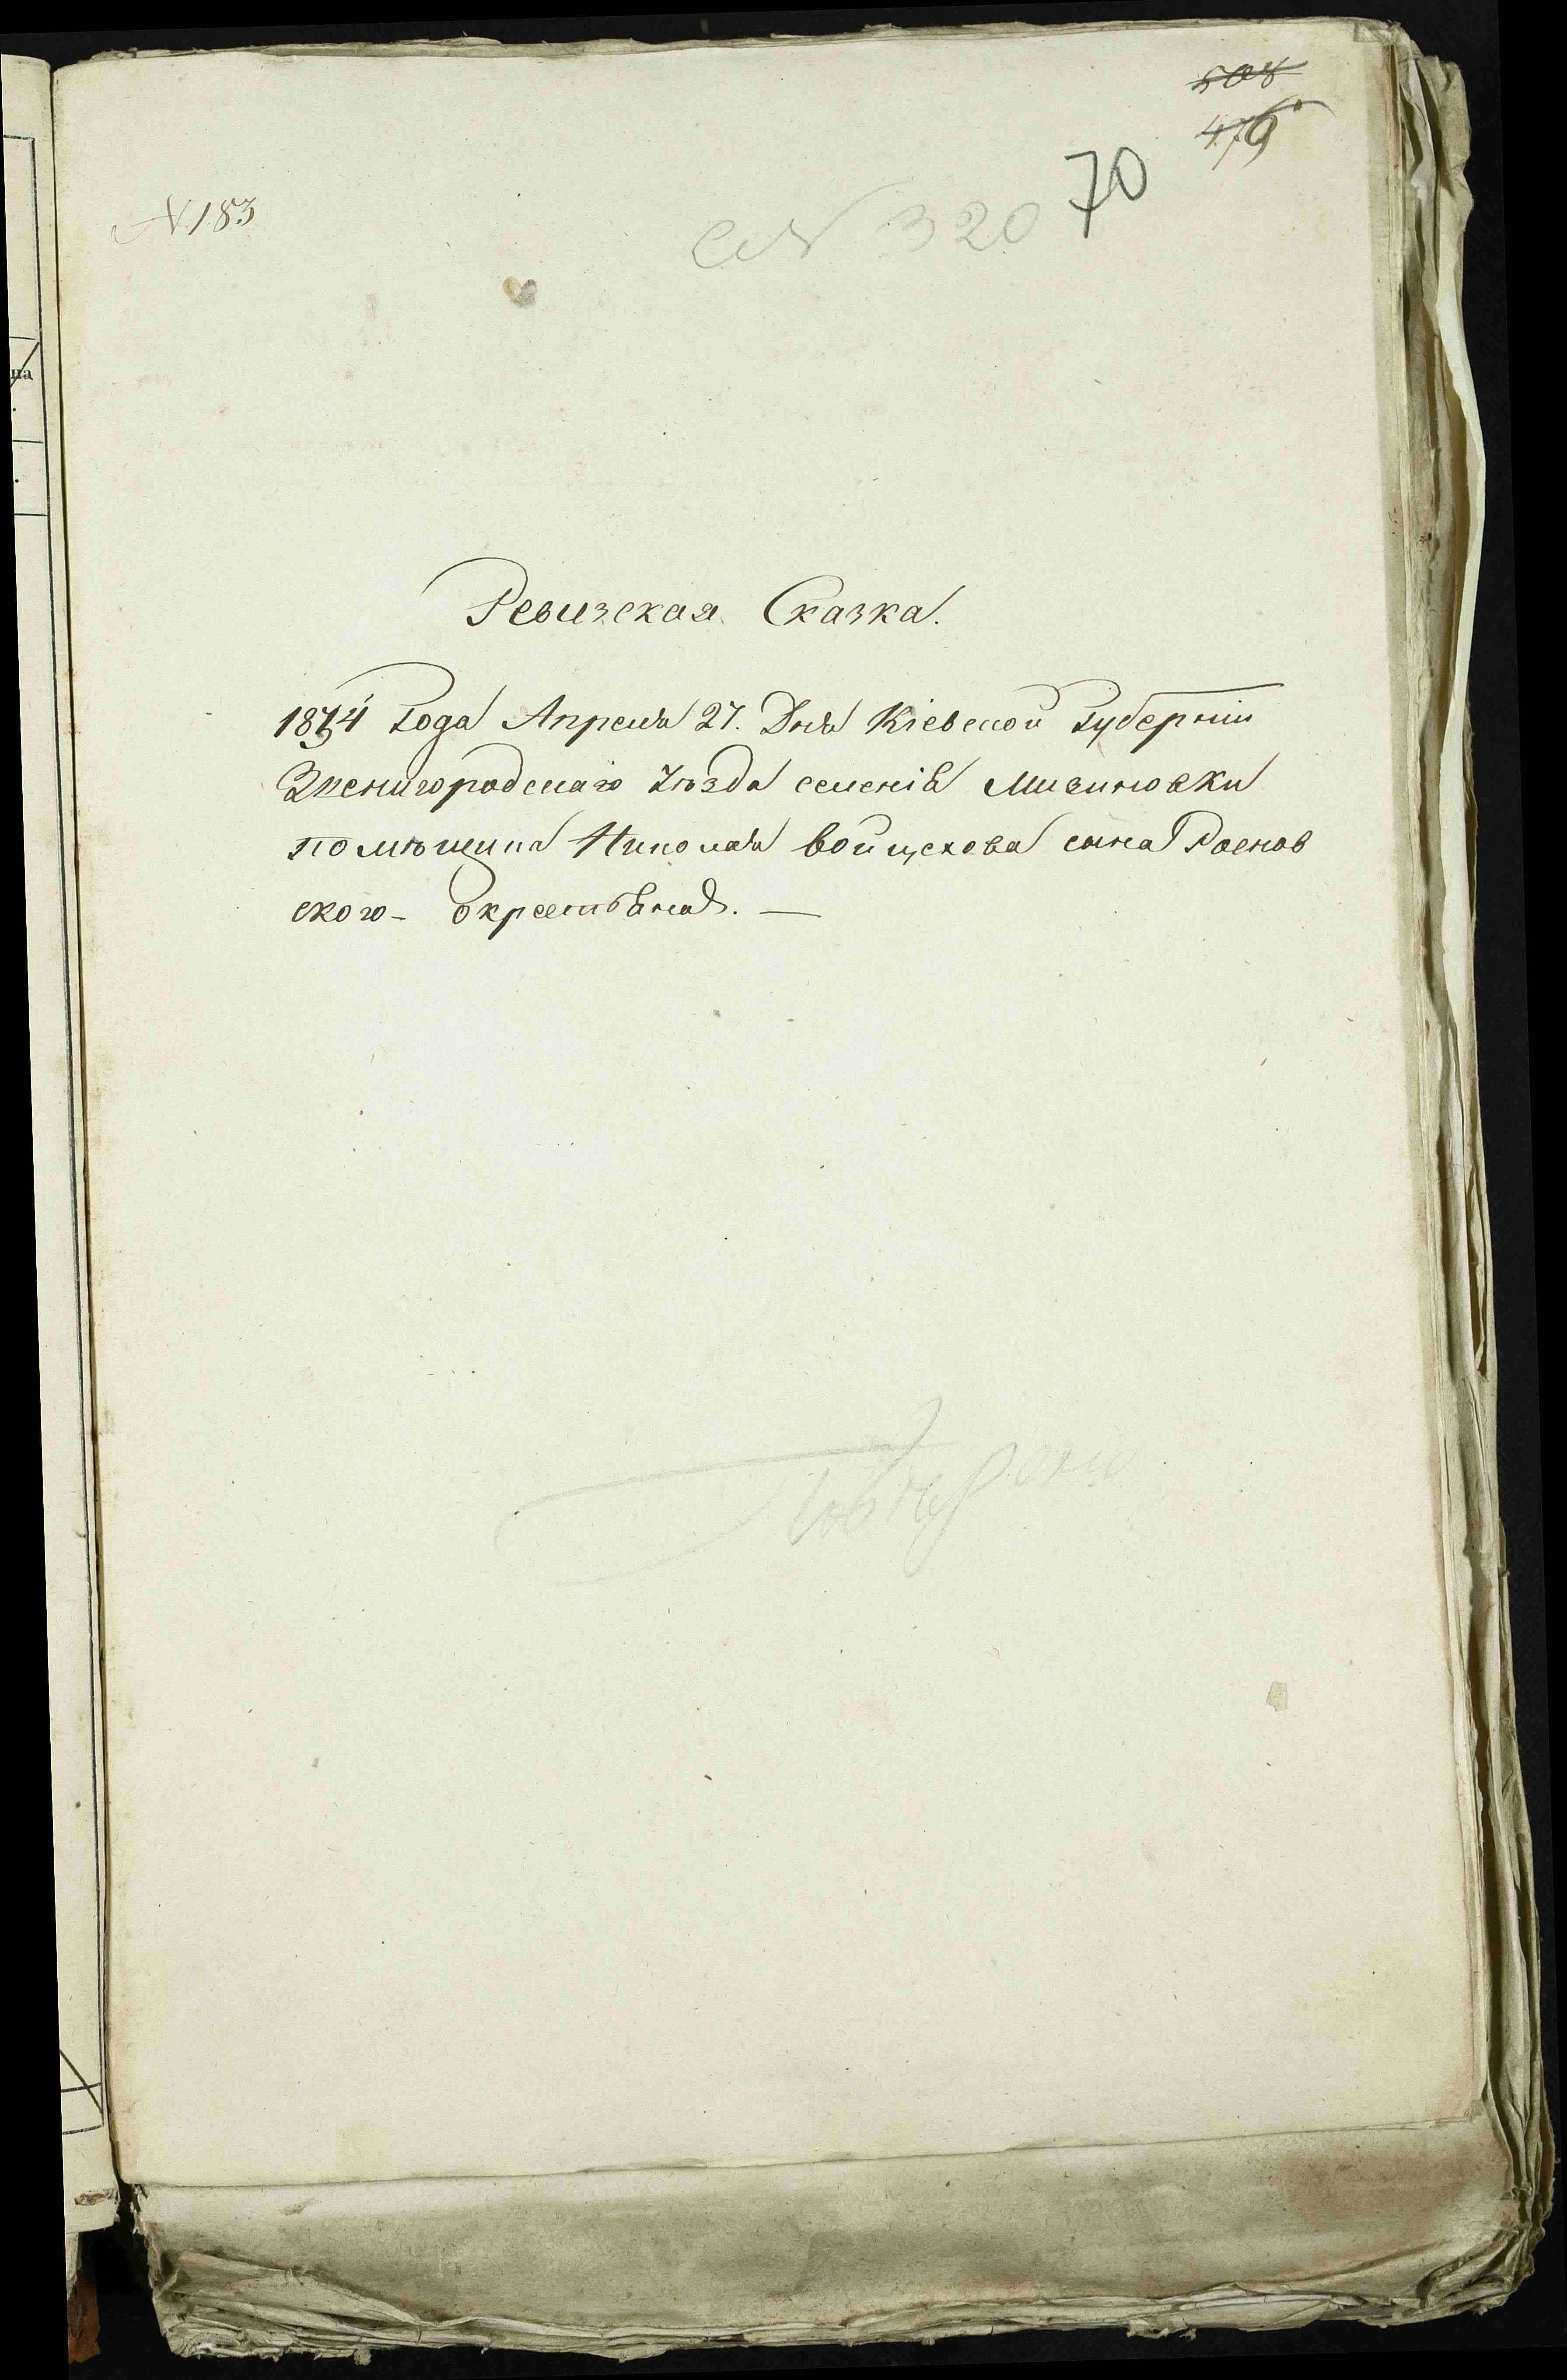 508
476
70
N 183
N 320
Ревизская Сказка.
1834 Года Апреля 27. Дня Кіевской Губерніи
Звенигородскаго Уѣзда селенія Мизиновки
помѣщика Николая Войцехова сына Роснов
ского - окрестьянахъ. —